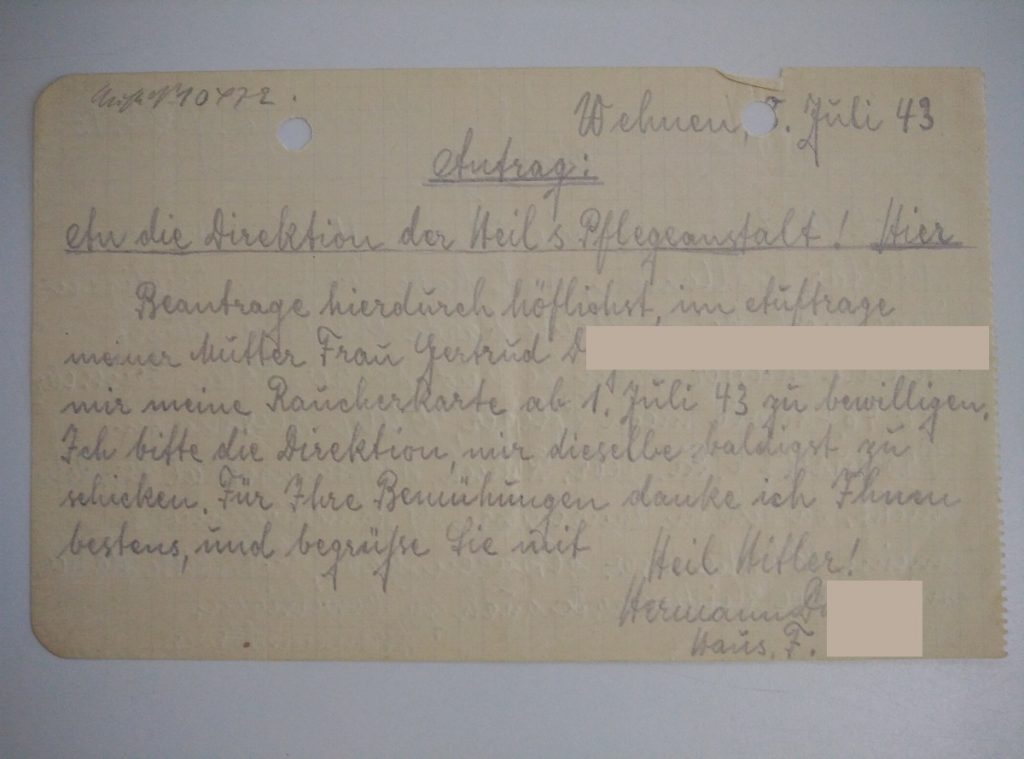 10472.
Wehnen, 5. Juli 43
Antrag:
An die Direktion der Heil & Pflegeanstalt! Hier
Beantrage hierdurch höflichst, im Auftrage
meiner Mutter Frau Gertrud D
mir meine Raucherkarte ab 1. Juli 43 zu bewilligen.
Ich bitte die Direktion, mir dieselbe baldigst zu
schicken. Für Ihre Bemühungen danke ich Ihnen
bestens, und begrüße Sie mit
Heil Hitler!
Hermann D
Haus. F.